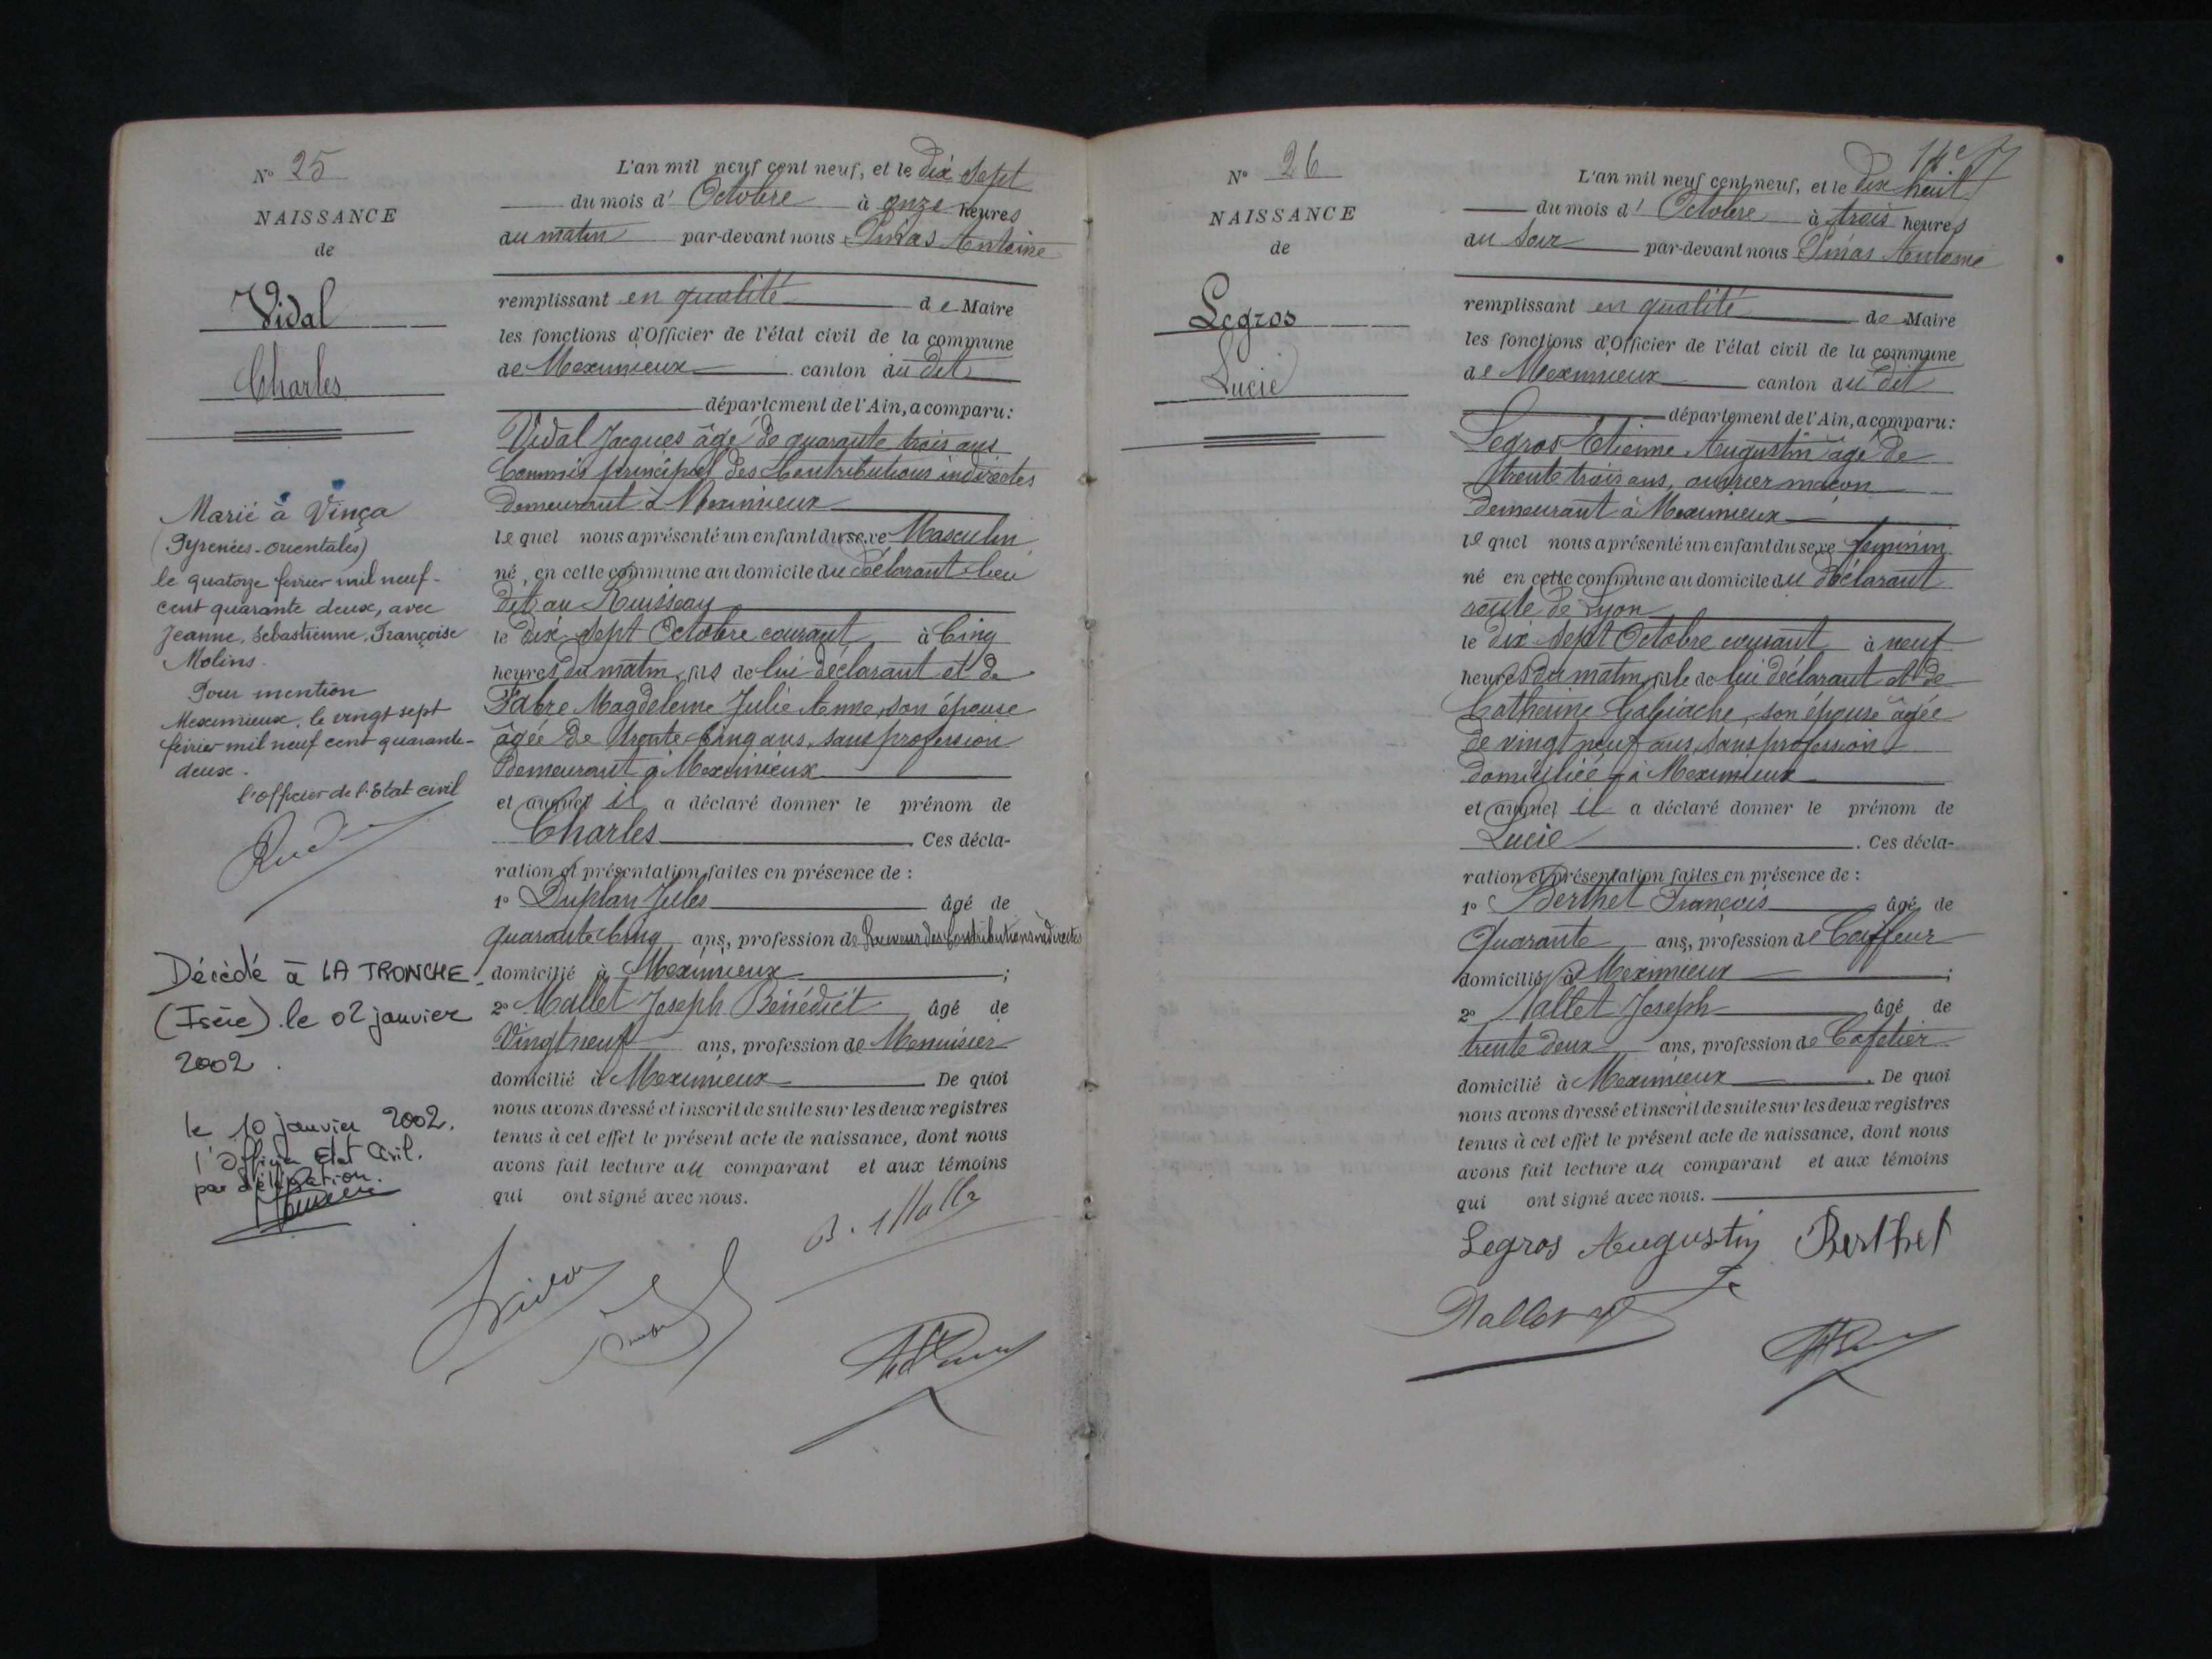 N° 25
NAISSANCE
de
Vidal
Charles
Marié à Vinça
(Pyrenées-orientales)
le quatorze fevrier mil neuf-
cent quarante deux, avec
Jeanne, Sebastienne, Françoise
Molins.
Pour mention
Meximieux, le vingt sept
février mil neuf cent quarante-
deux.
l'officier de l'Etat civil
Décédé à LA TRONCHE
(Isère) le 02 janvier
2002.
le 10 janvier 2002.
l'Officier Etat Civil.
par délégation.
L'an mil neuf cent neuf, et le dix sept
du mois d' Octobre à onze heures
du matin par-devant nous Antoine
remplissant en qualité de Maire
les fonctions d'Officier de l'état civil de la commune
de Meximieux canton du dit
département de l'Ain, a comparu:
Vidal Jacques âgé de quarante trois ans
Commis principal des Contributions indirectes
demeurant à Meximieux
lequel nous a présenté un enfant du sexe Masculin
né, en cette commune au domicile du déclarant lieu
dit au Ruisseau
le dix sept Octobre courant à Cinq
heures du matin, fils de lui déclarant et de
Fabre Magdeleine Julie Anne, son épouse
âgée de trente cinq ans, sans profession
demeurant à Meximieux
et auquel il a déclaré donner le prénom de
Charles. Ces décla-
ration et présentation faites en présence de :
1° Duplan Jules âgé de
quarante cinq ans, profession de Receveur des Contributions indirectes
domicilié à Meximieux;
2° Mallet Joseph Bénédict âgé de
Vingt neuf ans, profession de Menuisier
domicilié à Meximieux. De quoi
nous avons dressé et inscrit de suite sur les deux registres
tenus à cet effet le présent acte de naissance, dont nous
avons fait lecture au comparant et aux témoins
qui ont signé avec nous.
14e
N° 26
NAISSANCE
de
Legros
Lucie
L'an mil neuf cent neuf, et le dix huit
du mois d' Octobre à trois heures
du soir par-devant nous Antoine
remplissant en qualité de Maire
les fonctions d'Officier de l'état civil de la commune
de Meximieux canton du dit
département de l'Ain, a comparu:
Legros Etienne Augustin âgé de
trente trois ans, ouvrier maçon
demeurant à Meximieux
lequel nous a présenté un enfant du sexe feminin
né en cette commune au domicile du déclarant
route de Lyon
le dix sept Octobre courant à neuf
heures du matin, fille de lui déclarant et de
Catherine son épouse âgée
de vingt neuf ans, sans profession
domiciliée à Meximieux
et auquel il a déclaré donner le prénom de
Lucie. Ces décla-
ration et présentation faites en présence de :
1° Berthet François âgé de
Quarante ans, profession de Coiffeur
domicilié à Meximieux;
2° Joseph âgé de
trente deux ans, profession de Cafetier
domicilié à Meximieux. De quoi
nous avons dressé et inscrit de suite sur les deux registres
tenus à cet effet le présent acte de naissance, dont nous
avons fait lecture au comparant et aux témoins
qui ont signé avec nous.
Legros Augustin Berthet